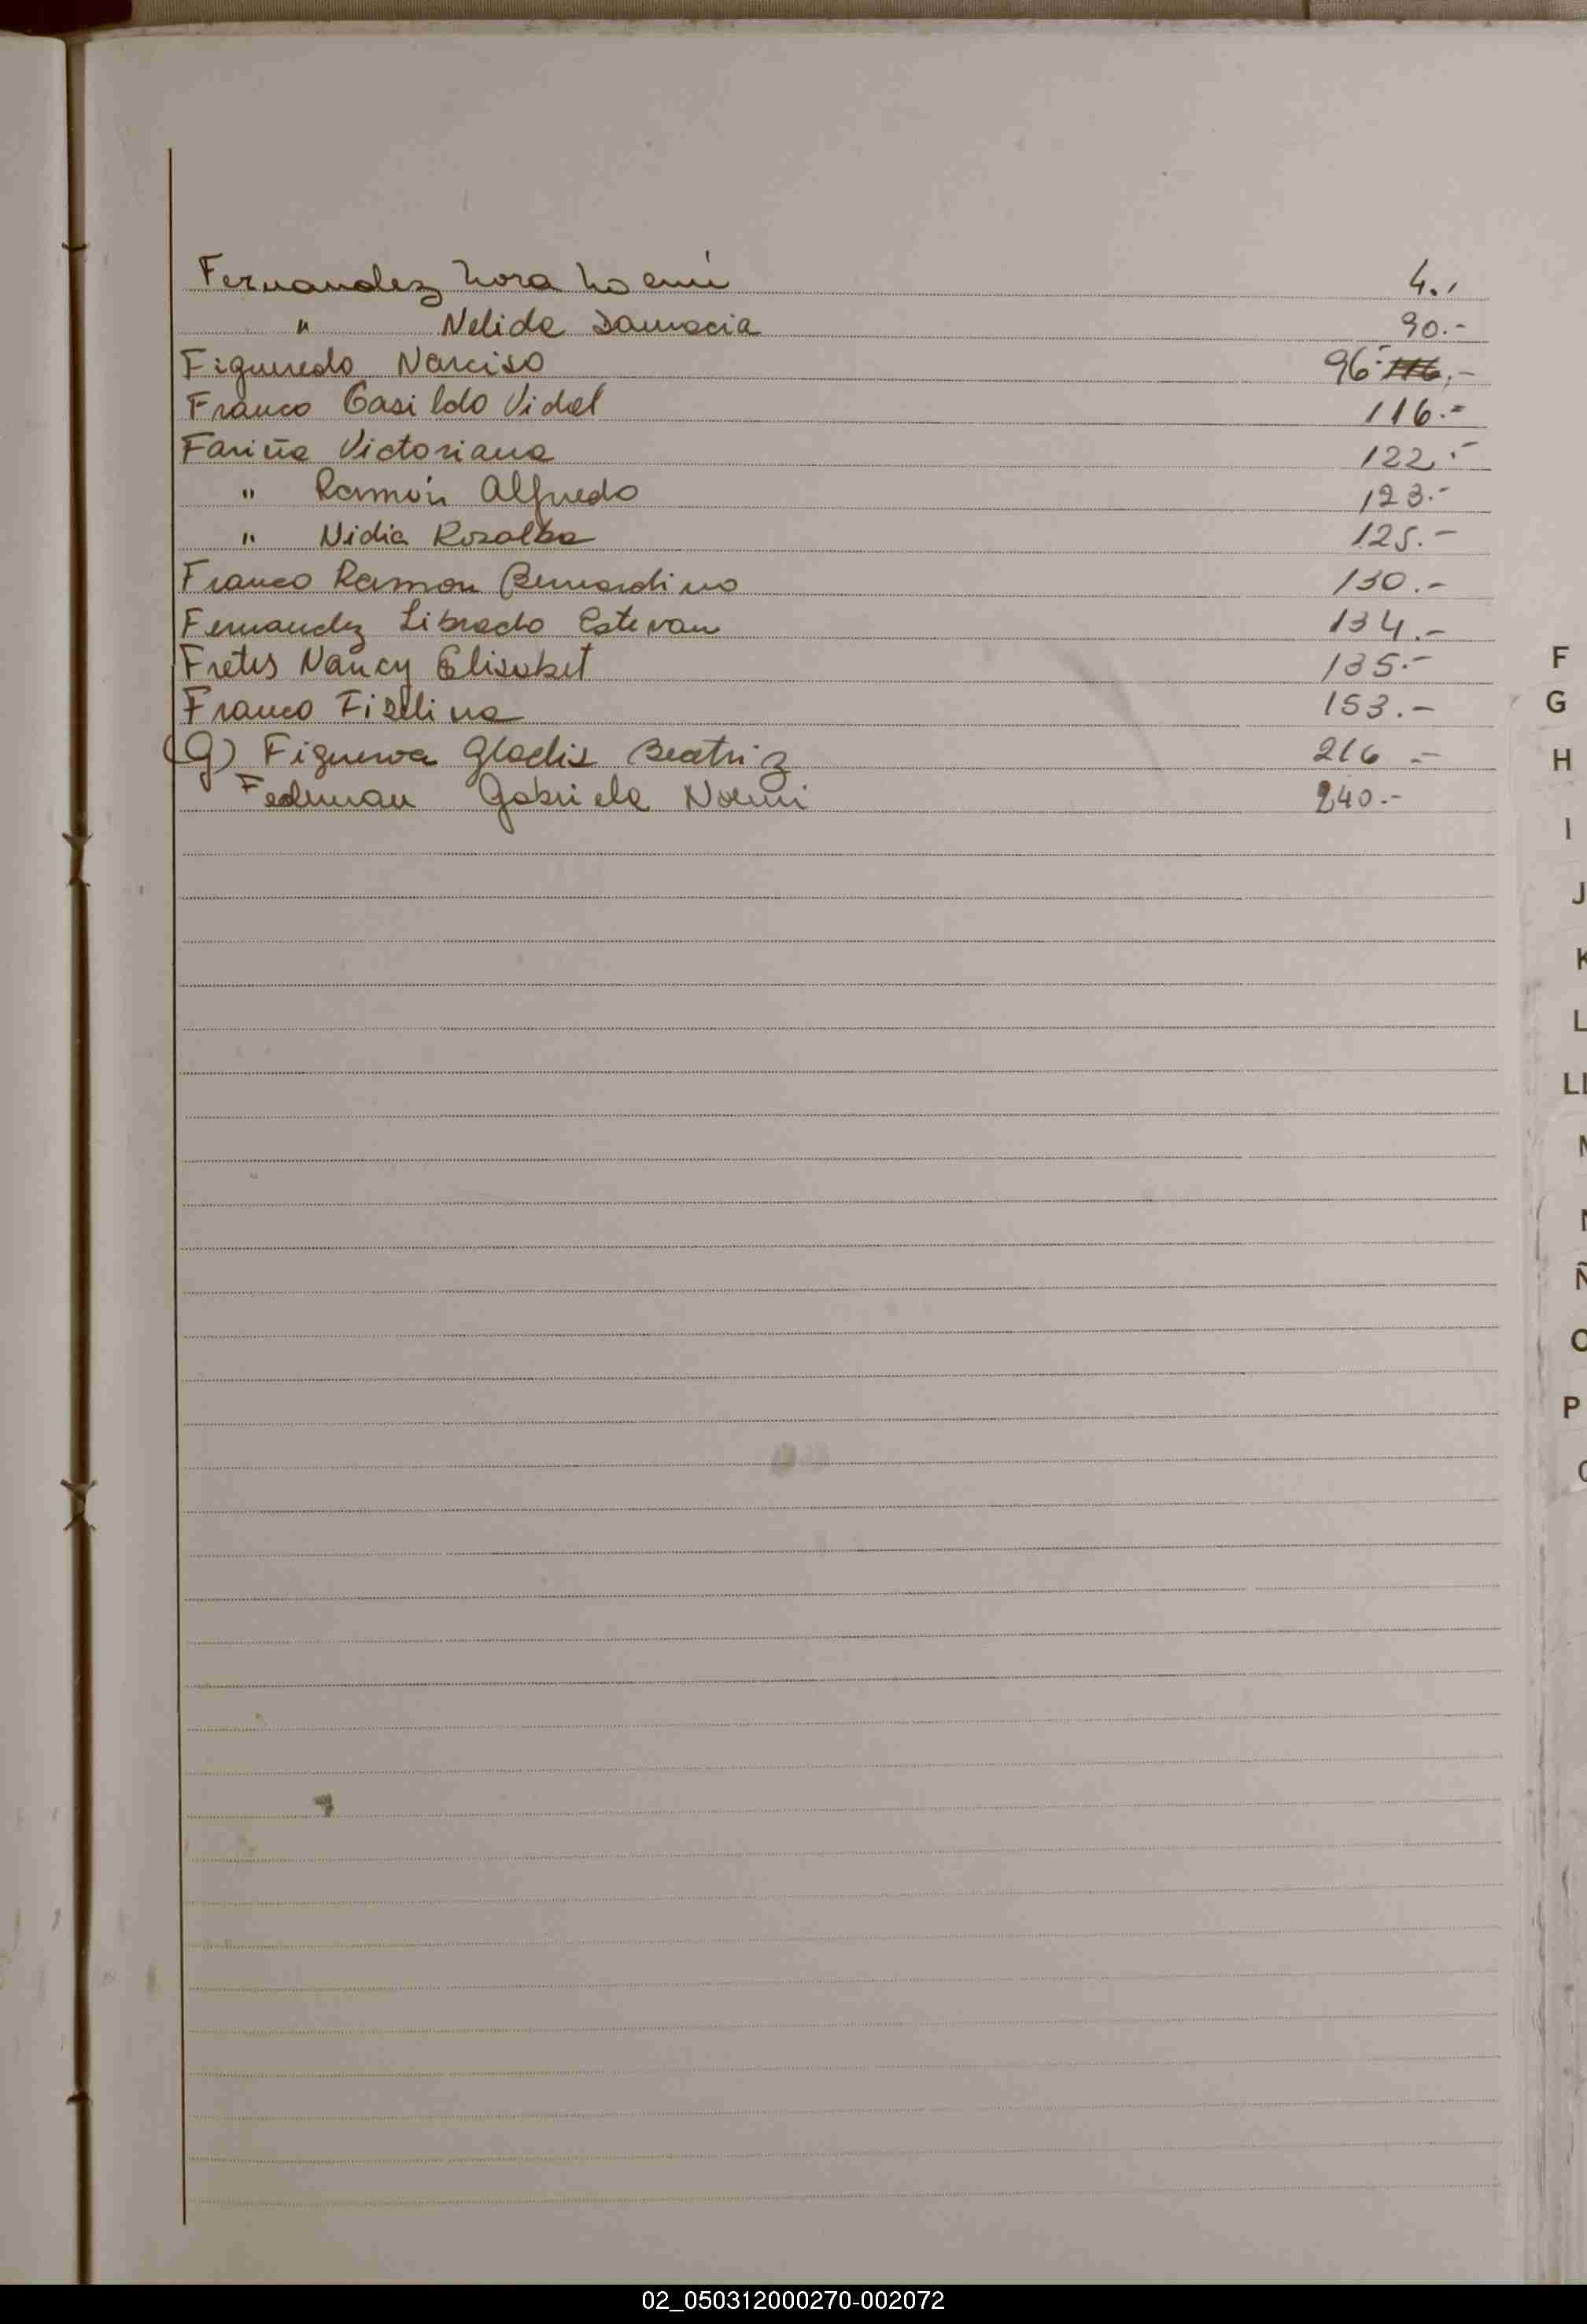 Fernandez Nora Noemí 4.-
" Nelida Damacia 90.-
Figueredo Narciso 96.- 116.-
Franco Casildo Vidal 116.-
Fariña Victoriana 122.-
" Ramón Alfredo 123.-
" Nidia Rosalba 125.-
Franco Ramon Bernardino 130.-
Fernandez Librado Estevan 134.-
Fretes Nancy Elisabet 135.-
Franco 153.-
(g) Figueroa Gladis Beatriz 216.-
Fedman Gabriela Noemi 240.-
F
G
H
I
J
K
L
LL
Ñ
O
P
02_050312000270-002072